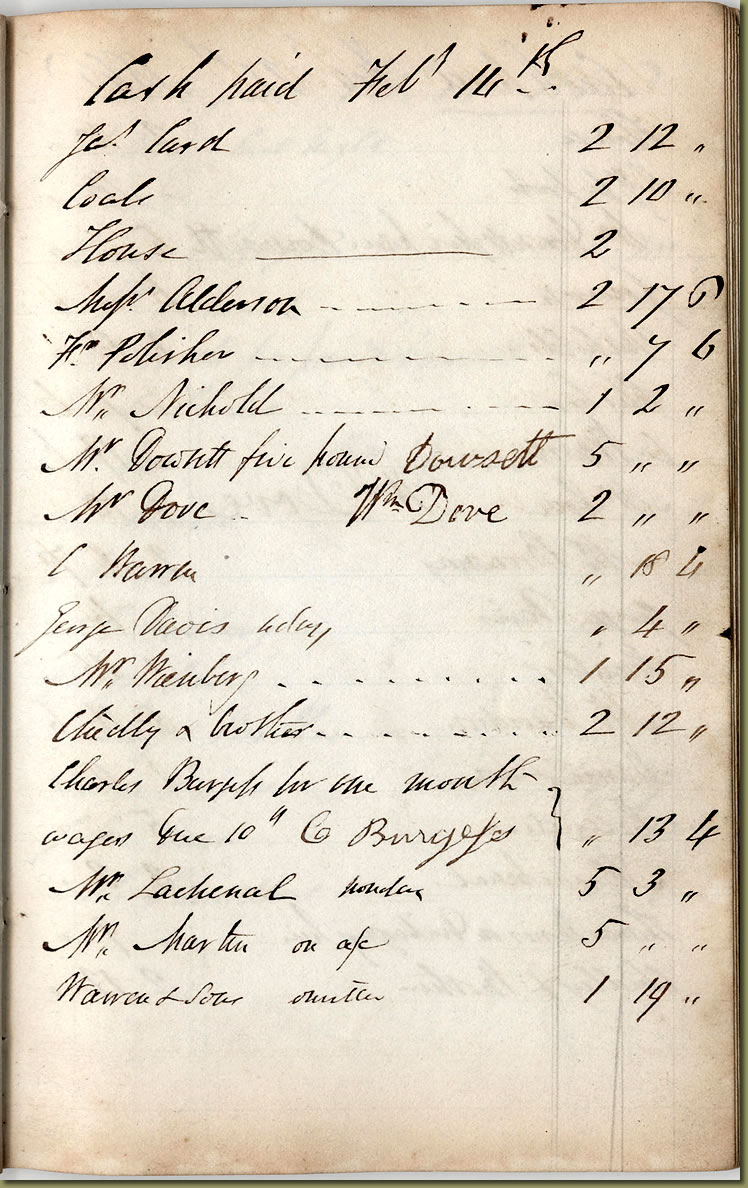 Cash paid Feby 14th
Jas. Card 2 12 "
Coals 2 10 "
House 2
Messrs Alderson 2 17 6
Fh. Polisher " 7 6
Mr. Nickold 1 2 "
Mr. Dowsett five pound Dowsett 5 " "
Mr Dove Wm Dove 2 " "
C Warren " 18 4
George Davis aday " 4 "
Mr. Wienberg 1 15 "
Chidley & brother 2 12 "
Charles Burgess for one month
wages due 10th C Burgess " 13 4
Mr. Lachenal monday 5 3 "
Mr. Martin on a/c 5 " "
Warren & Sons omitted 1 19 "